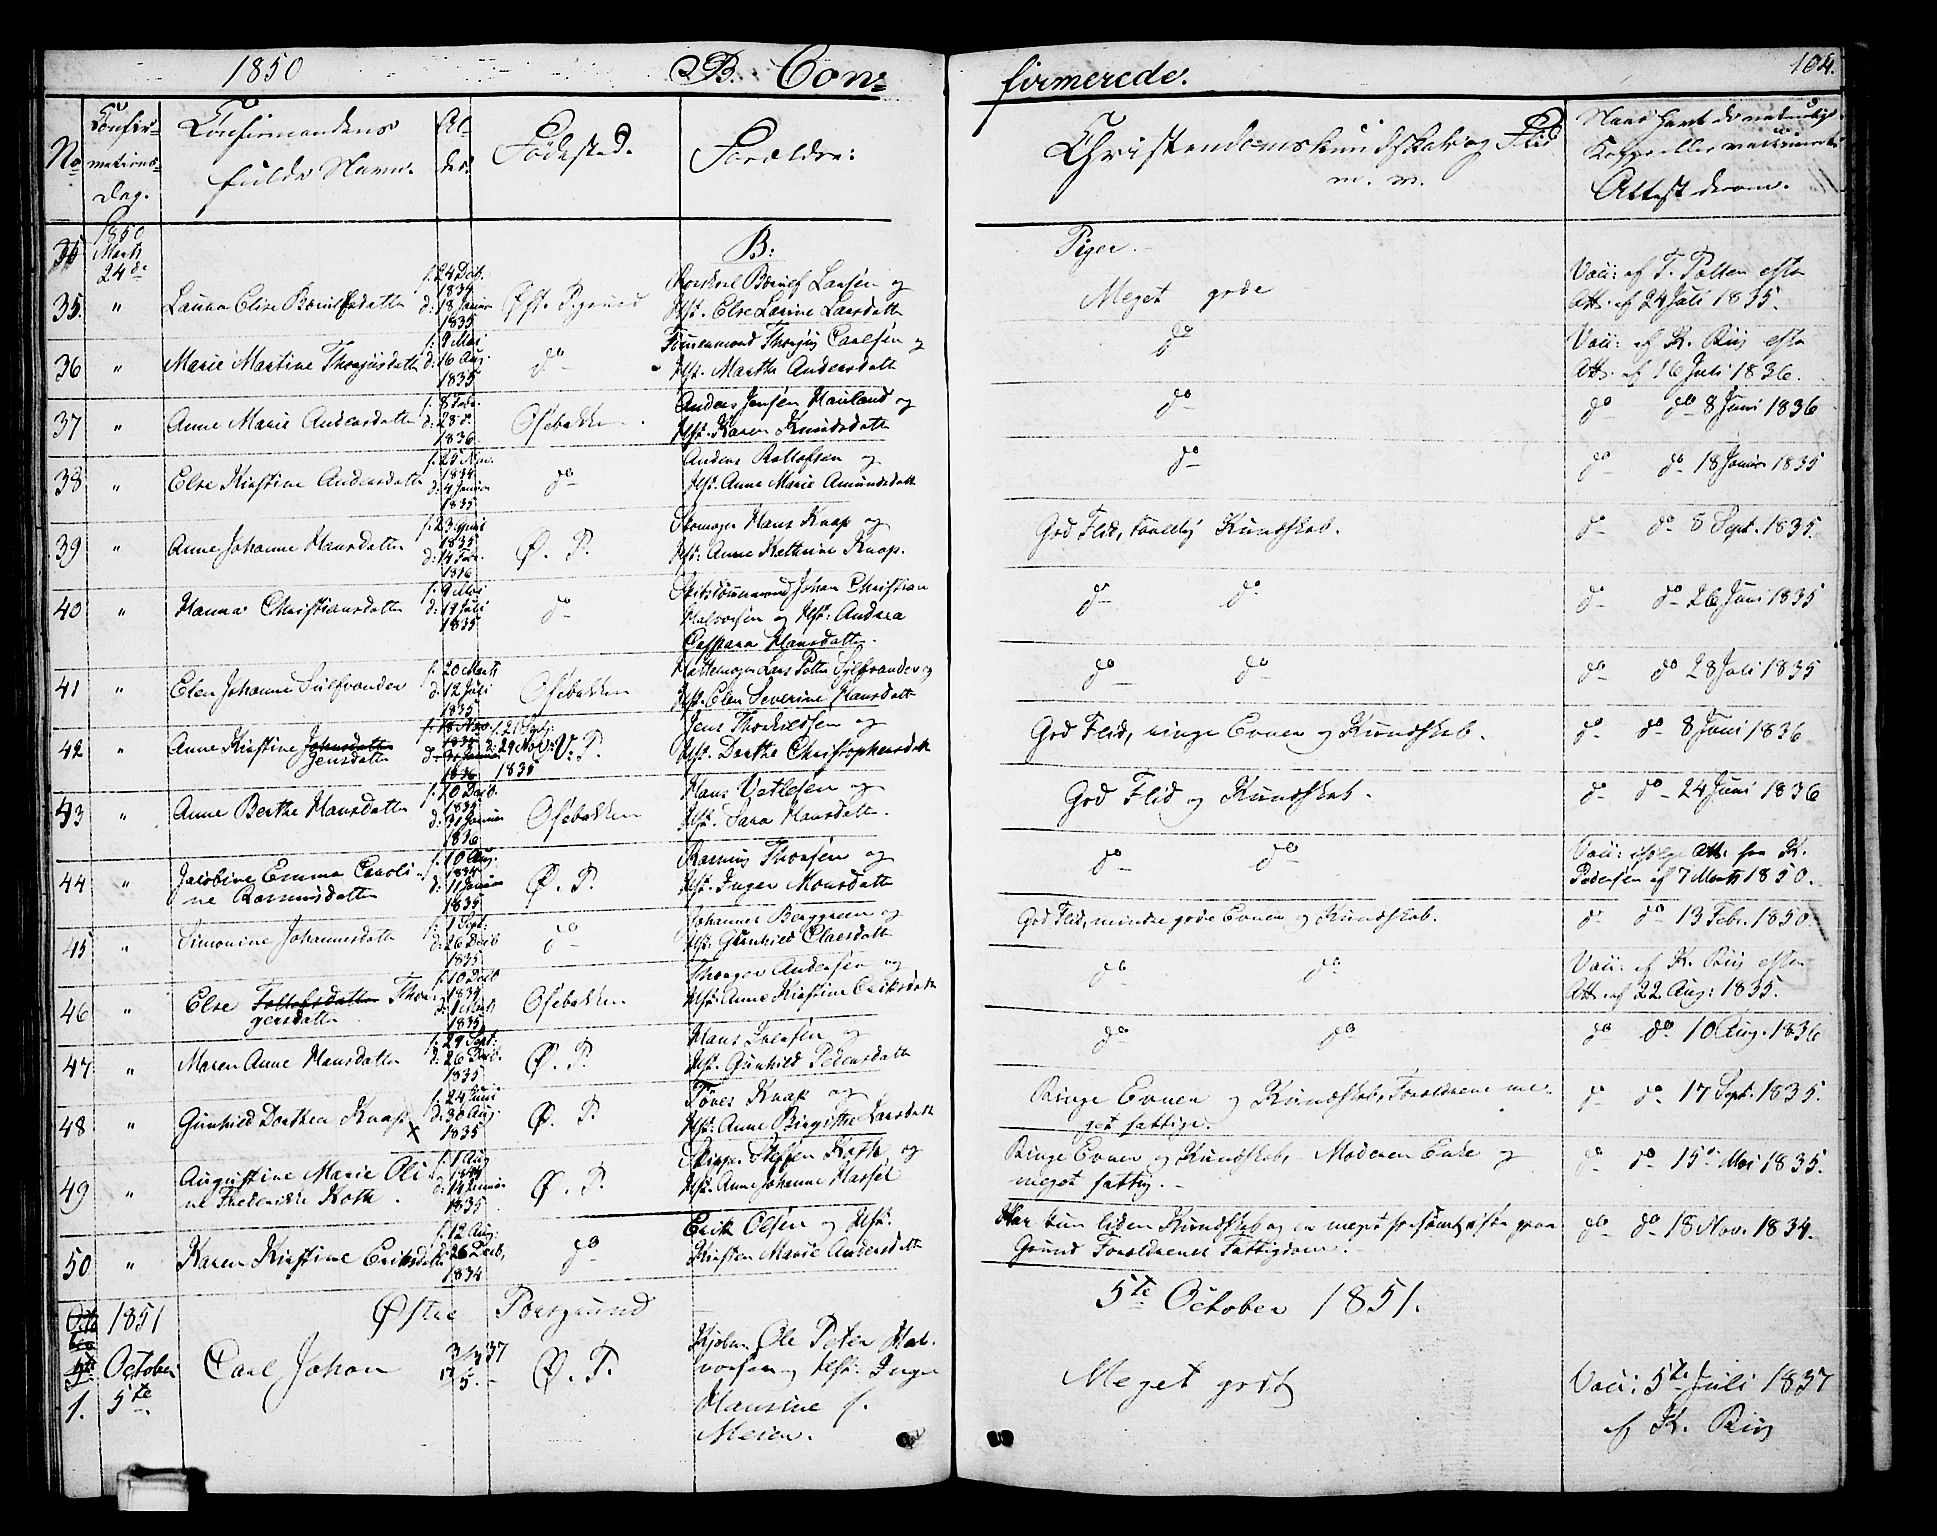 1850 B. Con=
firmerede. 104.
No Confir=
mations=
Dag. Confirmandens
fulde Navn. Al-
der. Fødested. Forældre:
Christendomskundskab og Flid
m. m.
Naar havt de naturlige
Kopper eller vaccineret
Attest derom.
1850
Marts
24de B: Piger.
35. " Laura Elise f. 24 Decb. 1834 d. 18 Januar 1835 Øst. Porsgrund Larsen og
Hst. Else Larine Larsdatter Meget gode Vacc: af T. Polten efter
Att. af 24 Juli 1835.
36 " Marie Martine f. 9 Mai d. 16 Aug. 1835 do Tømmermand Carlsen og
Hst. Marthe Andersdatter do Vacc: af K. Riis efter
Att. af 16 Juli 1836.
37 " Anne Marie Andersdatter f. 8 Febr. d. 28 d. 1836. Osebakken Anders Jensen Hauland og
Hst. Karen Knudsdatter do do do 8 Juni 1836
38 " Else Kirstine Andersdatter f. 25 Nov. 1834 d. 4 Januar 1835 do Anders Rollofsen og
Hst. Anne Marie Amundsdatt do do do 18 Januar 1835
39 " Anne Johanne Hansdatter f. 23 Juni 1835 d. 14 Febr. 1836 Ø. P. Skomager Hans Knap og
Hst: Anne Kathrine Knap. God Flid, taalelig Kundskab. do do 8 Sept. 1835.
40 " Hanna Christiansdatter f. 9 Mai d. 19 Juli 1835 do Johan Christian
Halvorsen og Hst: Andrea
Caspara Hansdatter. do do do do 26 Juni 1835
41 " Elen Johanne Sulfvander f. 20 Marts d. 12 Juli 1835 Osebakken Lars Petter Sylfvander og
Hst. Elen Severine Hansdatt do do do do 28 Juli 1835
42 " Anne Kirstine Johnsdatter
Jensdatter f. 18 Nov. 1835 d. 31 Januar 1836 f. 21 Septr. d. 29 Nov. 1835 V. P. Jens Thorkildsen og
Hst. Dorthe Christophersdatt God Flid, ringe Evner og Kundskab. do do 8 Juni 1836
43 " Anne Berthe Hansdatter f. 10 Decb. 1835 d. 31 Januar 1836 Osebakken Hans Vetlesen og
Hst. Sara Hansdatter. God Flid og Kundskab. do do 24 Juni 1836
44 " Jacobine Emma Caroli-
ne Rasmusdatter f. 10 Aug. 1834 d. 11 Januar 1835 Ø. P. Rasmus Thorsen og
Hst. Inger Monsdatter do do Vacc: ifølge Att: fra K.
Pedersen af 7 Marts 1850.
45 " Simonine Johannesdatter f. 1 Sept. d. 26 Decb 1835 do Johannes Berggreen og
Hst. Gunhild Claesdatt God Flid, mindre gode Evner og Kundskab. do do 13 Febr. 1850
46 " Else Thor-
gersdatter f. 10 Decb 1834 d. 1 Marts 1835 Osebakken Thorger Andersen og
Hst. Anne Kirstine Eriksdatt do do Vacc: af K. Riis efter
Att. af 22 Aug: 1835.
47 " Maren Anne Hansdatter f. 29 Sept. d. 26 Decb. 1835 Ø. P. Hans Iversen og
Hst. Gunhild Pedersdatt do do do do 10 Aug. 1836
48 " Gunhild Dorthea Knap x f. 24 Juni d. 30 Aug. 1835 Ø. P. Tøver Knap og
Hst: Anne Birgitte Larsdatt Ringe Evner og Kundskab, Forældrene me-
get fattige. do do 17 Sept. 1835.
49 " Augustine Marie Oli-
ne Frederikke Koth. f. 1 Aug 1834 d. 14 Januar 1835 Ø. P. Skipper Steffen Koth og
Hst. Anne Johanne Hassel Ringe Evner og Kundskab, Moderen Enke og
meget fattig. do do 15 Mai 1835.
50 " Karen Kirstine Eriksdatter f. 12 Aug. d. 26 Decb. 1834 do Erik Olsen og Hst.
Kirsten Marie Andersdatt Har kun liden Kundskab og er meget forsømt, især paa
Grund Forældrenes Fattigdom. do do 18 Nov. 1834.
1851 Østre Porsgrund 5te October 1851.
1. October
5te. Carl Johan 3/3 37 5. Ø. P. Kjøbm. Ole Peter Hal-
vorsen og Hst. Inger
Hansine f.
Meier. Meget godt Vacc: 5te Juli 1837
af K. Riis